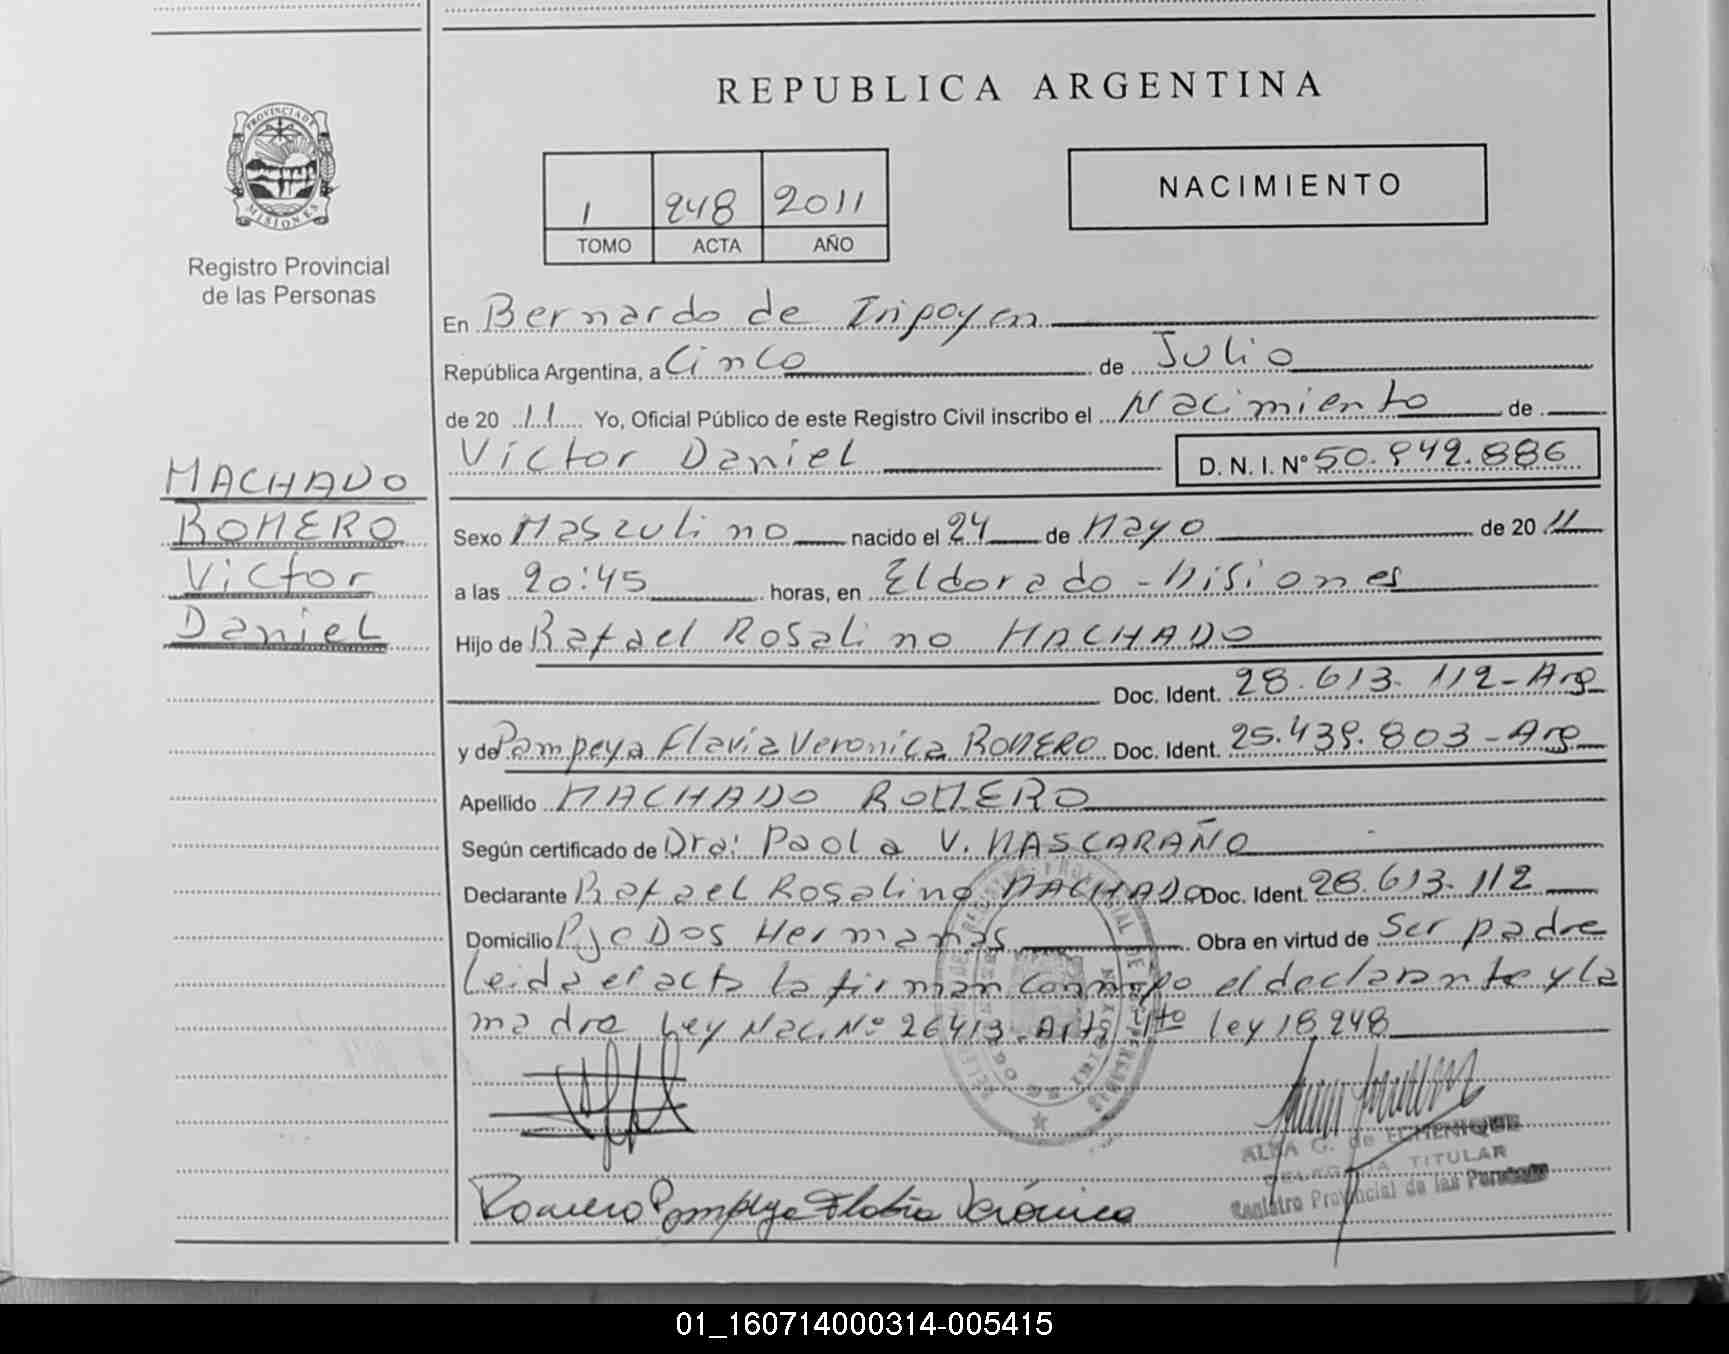 REPUBLICA ARGENTINA
PROVINCIA DE
MISIONES
Registro Provincial
de las Personas
1 248 2011
TOMO ACTA AÑO
NACIMIENTO
En Bernardo de Iripoyen
República Argentina, a Cinco de Julio
de 20 11 Yo, Oficial Público de este Registro Civil inscribo el Nacimiento de
Victor Daniel D. N. I. Nº 50.842.886
MACHADO
ROMERO
Victor
Daniel
Sexo Masculino nacido el 24 de Mayo de 20 11
a las 20:45 horas, en Eldorado - Misiones
Hijo de Rafael Rosalino MACHADO
Doc. Ident. 28.613.112 - Arg
y de Pampeya Flavia Veronica ROMERO Doc. Ident. 25.439.803 - Arg
Apellido MACHADO ROMERO
Según certificado de Dra: Paola V. MASCARAÑO
Declarante Rafael Rosalino MACHADO Doc. Ident. 28.613.112
Domicilio Pje Dos Hermanas Obra en virtud de Ser padre
Leida el acta la firman conmigo el declarante y la
madre Ley Nac. Nº 26413 - Arts 4to ley 18.248
ALBA G. de ECHENIQUE
DELEGADA TITULAR
Registro Provincial de las Personas
Romero Pompeya Flabia Verónica
01_160714000314-005415